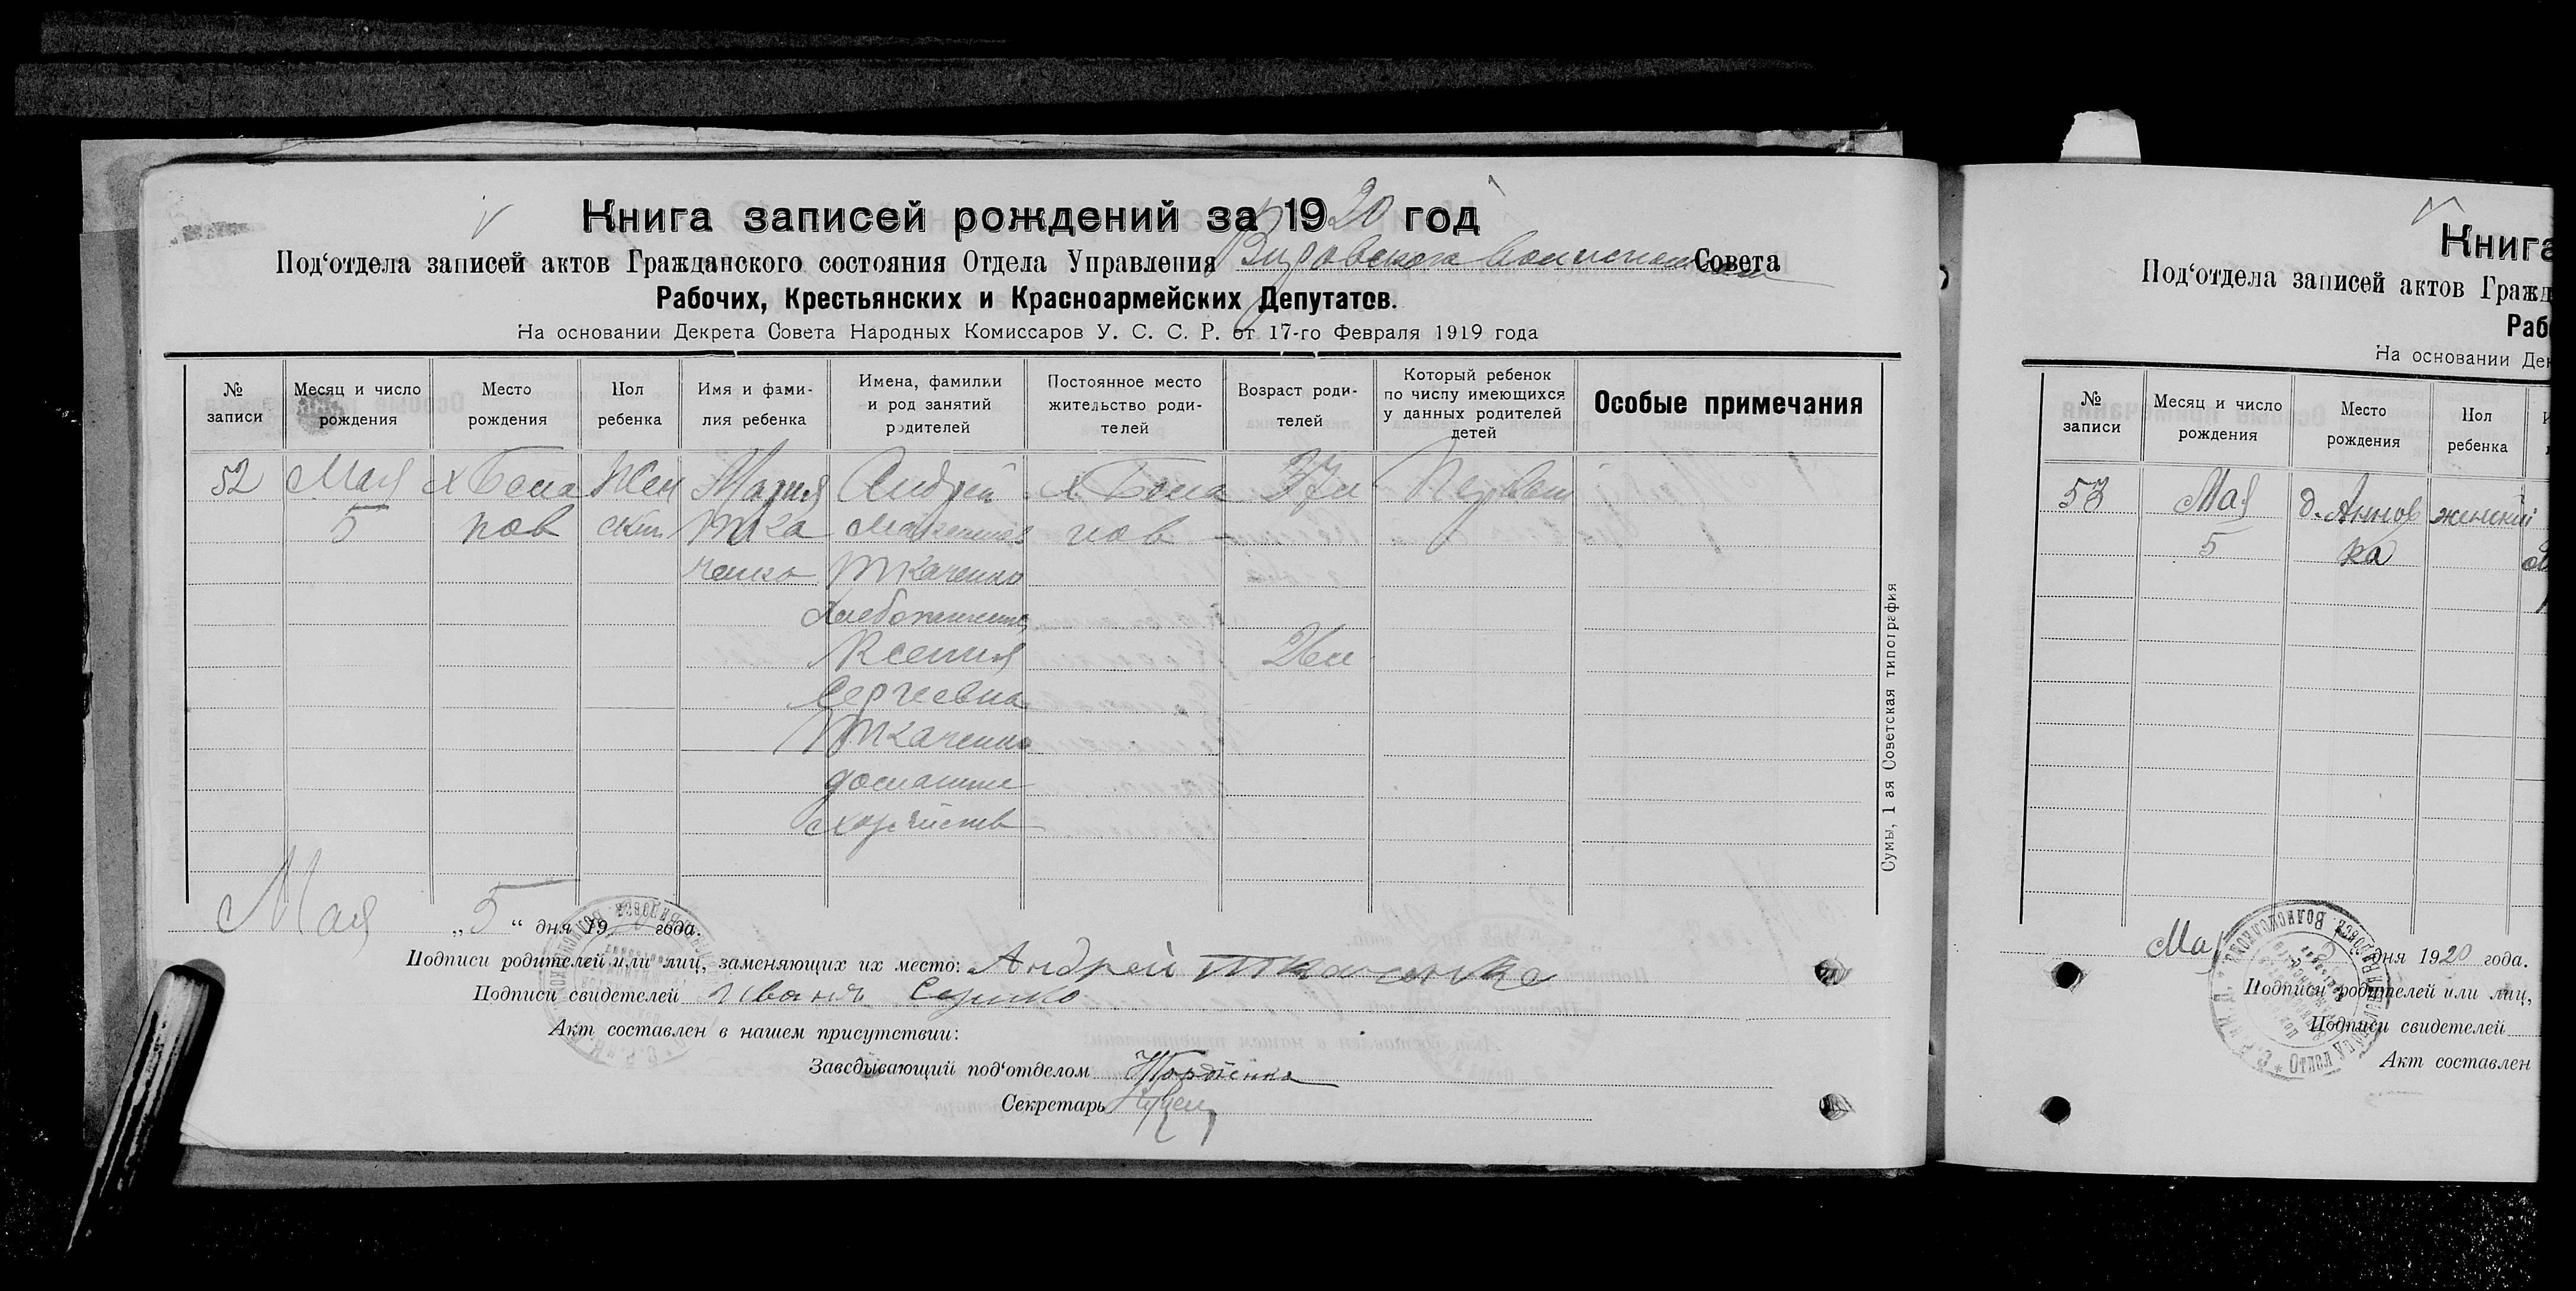 Книга записей рождений за 1920 год
Под‘отдела записей актов Гражданского состояния Отдела Управления Совета
Рабочих, Крестьянских и Красноармейских Депутатов.
На основании Декрета Совета Народных Комиссаров У. С. С. Р. от 17-го Февраля 1919 года
№ записи
Месяц и число рождения
Место рождения
Пол ребенка
Имя и фами-
лия ребенка
Имена, фамилии
и род занятий
родителей
Постоянное место
жительство роди-
телей
Возраст роди-
телей
Который ребенок
по числу имеющихся
у данных родителей
детей
Особые примечания
52
Мая
5
пов
Жен
ский
Мария
Тка
ченко
Андрей
Ткаченко
Ксения
Сергеевна
Ткаченко
домашнее
37
26
Первый
Сумы, 1 ая Советская типография
Мая „5“ дня 1920 года.
Подписи родителей или лиц, заменяющих их место: Андрей Ткаченко
Подписи свидетелей Иванъ
Акт составлен в нашем присутствии:
Заведывающий под‘отделом
Секретарь
Книга
Под‘отдела записей актов Гражд
Раб
На основании Дек
№ записи
Месяц и число рождения
Место рождения
Пол ребенка
53
Мая
5
д. Аннов
ка
женский
Мая 5 дня 1920 года.
Подписи родителей или лиц,
Подписи свидетелей
Акт составлен